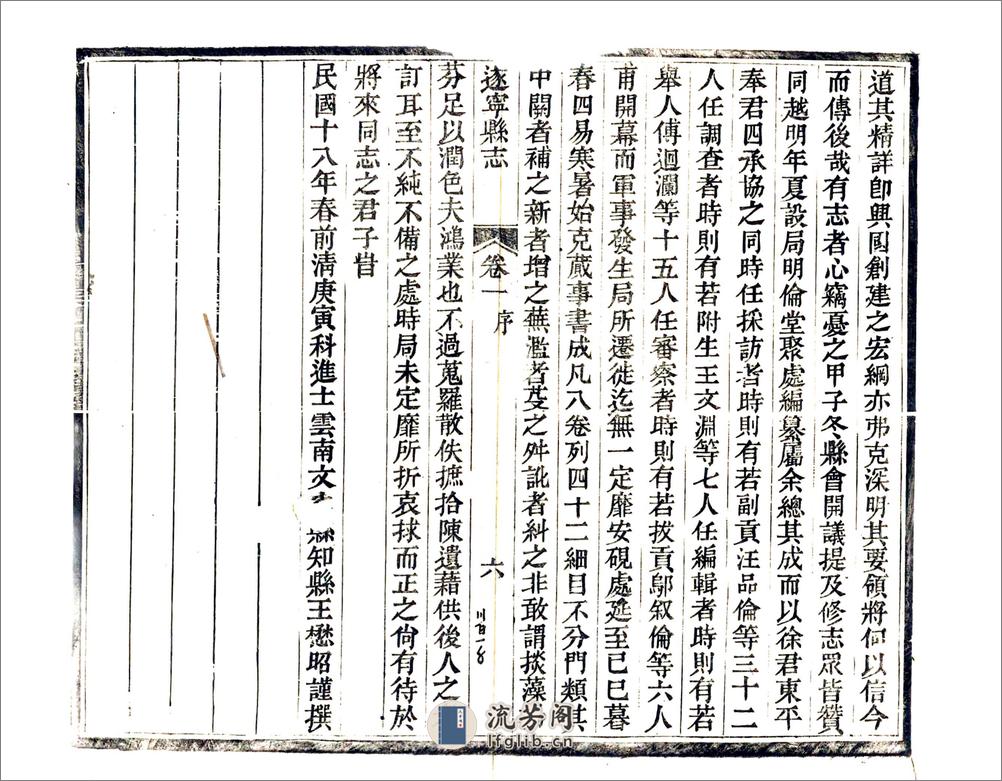 道其精詳卽興國創建之宏綱亦弗克深明其要領將何以信今
而傳後哉有志者心竊憂之甲子冬縣會開議提及修志眾皆贊
同越明年夏設局明倫堂聚處編纂屬余總其成而以徐君東平
奉君四承協之同時任採訪者時則有若副貢汪品倫等三十二
人任調查者時則有若附生王文淵等七人任編輯者時則有若
舉人傅迴瀾等十五人任審察者時則有若拔貢鄔叙倫等六人
甫開幕而軍事發生局所遷徙迄無一定靡安硯處延至已巳暮
春四易寒暑始克蕆事書成凡八卷列四十二細目不分門類其
中闕者補之新者增之蕪濫者芟之舛訛者糾之非敢謂掞藻
遂寧縣志 卷一 序 六
芬足以潤色夫鴻業也不過蒐羅散佚摭拾陳遺藉供後人之
訂耳至不純不備之處時局未定靡所折衷捄而正之尙有待於
將來同志之君子旹
民國十八年春前清庚寅科進士雲南文 知縣王懋昭謹撰
流芳阁
lfglib.cn